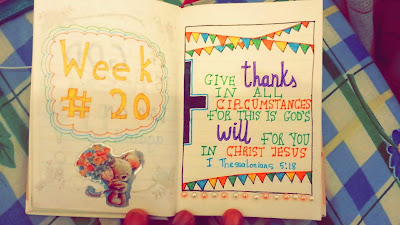 Week
# 20
GIVE thanks
IN ALL
CIRCUMSTANCES
FOR THIS IS GOD'S
will FOR YOU
IN CHRIST JESUS
I Thessalonians 5:18